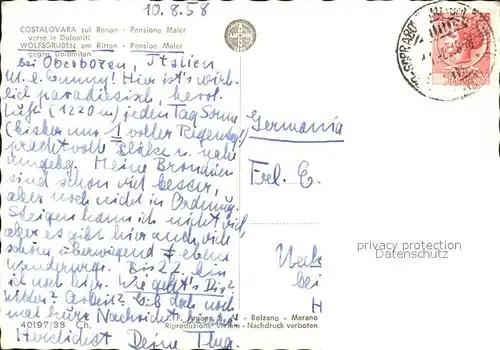 10.8.58
COSTALOVARA sul Renon - Pensione Maier
verso le Dolomiti
WOLFSGRUBEN am Ritten - Pension Maier
gegen Dolomiten
bei Oberbozen, Italien
M. l. Emmy! Hier ist's wirk-
lich paradiesisch, herrl.
Luft (1220 m) jeden Tag Sonne
(bisher nur 1 voller Regentag)
prachtvolle Blicke u. nahe
Umgebg. Meine Bronchien
sind schon viel besser,
aber noch nicht in Ordnung.
Steigen kann ich nicht viel,
aber es gibt hier auch viele
schöne überwiegend ebene
Wanderwege. Bis 22. bin
ich noch hier. Wie geht's Dir?
Arbeit? Gib doch noch
mal kurze Nachricht
Herzlichst Deine
Germania
Frl. E.
Neck
bei
H
privacy protection
Datenschutz
40197/38 Ch.
Bolzano - Merano
Riproduzione vietata - Nachdruck verboten